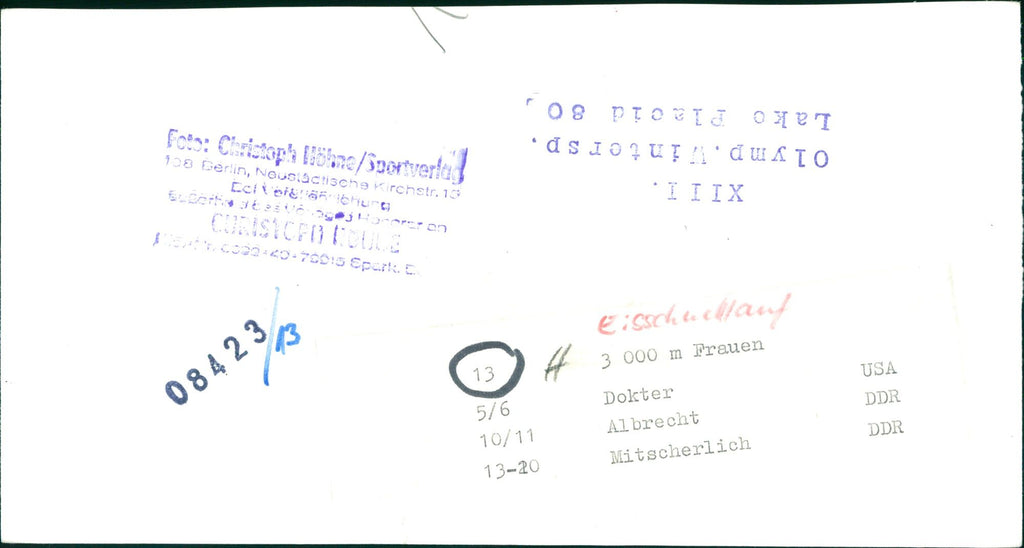 XIII.
Olymp.Wintersp.
Lake Placid 80,
Foto: Christoph Höhne/Sportverlag
108 Berlin, Neustädtische Kirchstr. 15
Bei Veröffentlichung
außerhalb des Verlages Honorar an
CHRISTOPH HÖHNE
08423/13
Eisschnellauf
13 3 000 m Frauen
5/6 Dokter USA
10/11 Albrecht DDR
13-20 Mitscherlich DDR